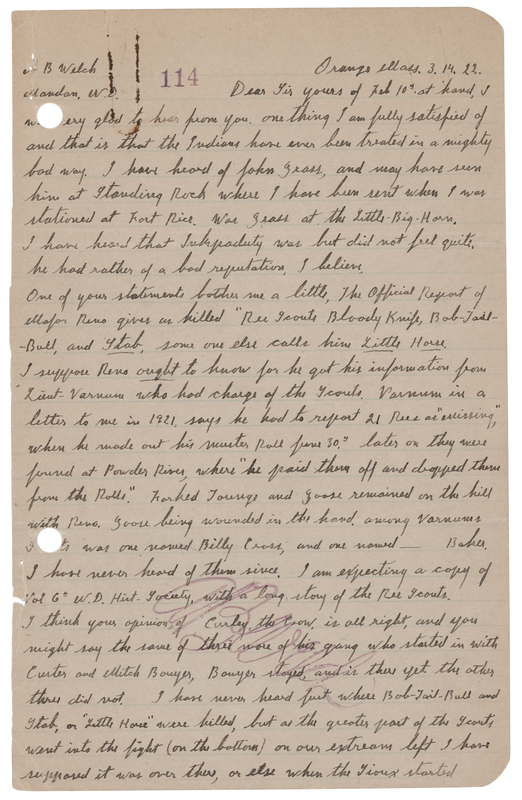 B Welch
114
Orange Mass. 3.14.22.
Mandan, N.D. Dear Sir yours of Feb 10th at hand, I
was very glad to hear from you. one thing I am fully satisfied of
and that is that the Indians have ever been treated in a mighty
bad way. I have heard of John Grass, and may have seen
him at Standing Rock where I have been sent when I was
stationed at Fort Rice. Was Grass at the Little-Big-Horn.
I have heard that was but did not feel quite,
he had rather of a bad reputation, I believe.
One of your statements bothers me a little, The Official Report of
Major Reno gives as killed "Ree Scouts Bloody Knife, Bob-Tail-
-Bull, and Stab, some one else calls him Little Horse.
I suppose Reno ought to know for he got his information from
Lieut-Varnum who had charge of the Scouts. Varnum in a
letter to me in 1921, says he had to report 21 Rees as "missing",
when he made out his muster Roll June 30th later on they were
found at Powder River, where "he paid them off and dropped them
from the Rolls". Forked Tounge and Goose remained on the hill
with Reno. Goose being wounded in the hand. among Varnums
was one named Billy Cross, and one named — Baker.
I have never heard of them since. I am expecting a copy of
Vol 6th N.D. Hist. Society, with a long story of the Ree Scouts.
I think your opinion of Curley, the Crow, is all right, and you
might say the same of three more of his gang who started in with
Custer and Mitch Bouyer, Bouyer stayed, and is there yet the other
three did not. I have never heard just where Bob-Tail-Bull and
Stab, or "Little Horse" were killed, but as the greater part of the Scouts
went into the fight (on the bottom) on our extream left I have
supposed it was over there, or else when the Sioux started